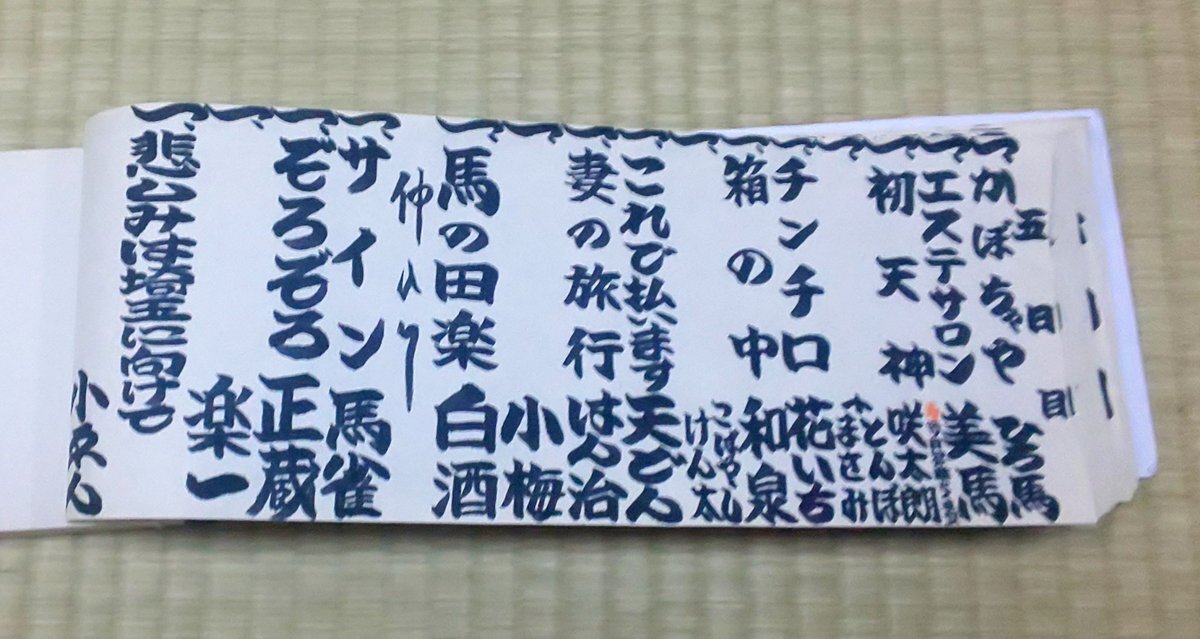 五日目
一、かぼちゃや ひろ馬
一、エステサロン 美馬
一、初天神 咲太朗
一、とんぼ
まさみ
一、チンチロ 花いち
一、箱の中 和泉
一、こばやし
けん太
一、これで払います 天どん
一、妻の旅行 はん治
一、小梅
一、馬の田楽 白酒
仲入り
一、サイン 馬雀
一、ぞろぞろ 正蔵
一、楽一
一、悲しみは埼玉に向けて
小ゑん